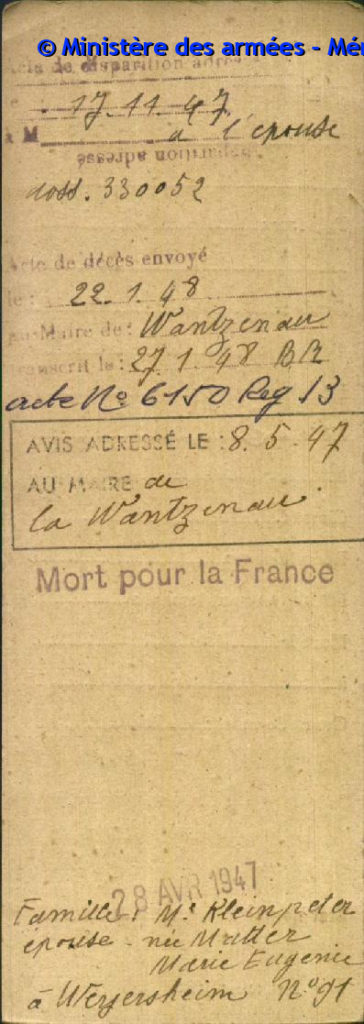 © Ministère des armées - Mé
Acte de disparition adressé
le 17.11.47
à M à l'épouse
disparition adressé
doss. 330052
Acte de décès envoyé
le : 22.1.48
au Maire de : Wantzenau
transcrit le : 27.1.48 BR
acte No 6150 Reg 13
AVIS ADRESSÉ LE : 8.5.47
AU MAIRE de
la Wantzenau.
Mort pour la France
28 AVR 1947
Famille : Me Kleinpeter
épouse - née Mutter
Marie Eugenie
à Weyersheim No 91